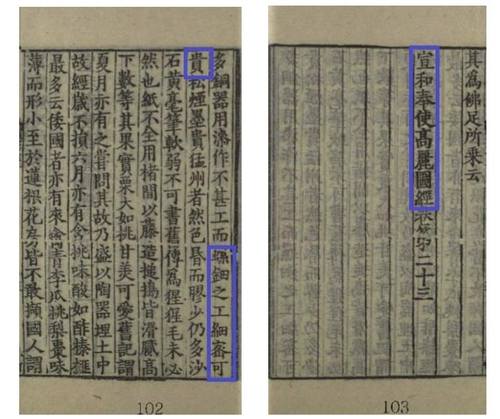 多銅器用漆作不甚工而螺鈿之工細密可
貴松煙墨貴猛州者然色昏而膠少仍多沙
石黃毫筆軟弱不可書舊傳爲猩猩毛未必
然也紙不全用楮間以藤造搥搗皆滑膩高
下數等其果實栗大如桃甘美可愛舊記謂
夏月亦有之嘗問其故乃盛以陶器埋土中
故經歲不損六月亦有含桃味酸如酢榛榧
最多云倭國者亦有來禽青李瓜桃梨棗味
薄而形小至於蓮根花房皆不敢擷國人謂
102
其爲佛足所乘云
宣和奉使高麗圖經卷第二十三
103